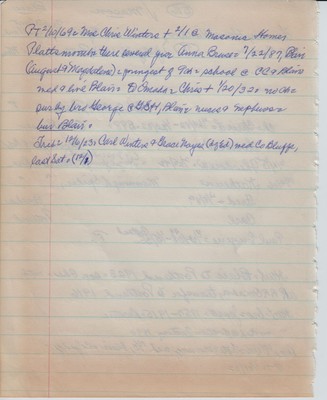 FT 2/10/69 = Mrs Chris Wintere + 2/1 @ Masonic Home =
Plattsmouth = there several yrs = Anna Bruse = 7/22/87, Blair
(August & Magdalena) = youngest of 9 ch = school @ CC & Blair =
md & live Blair = to Omaha = Chris + 1/20/32 = no ch =
surv by bro George @ Ft , Blair = nieces & nephews =
bur Blair =
Trib = 10/16/23 = Carl Winter & Grace Mayer (of ) md Co Bluffs,
last Sat =